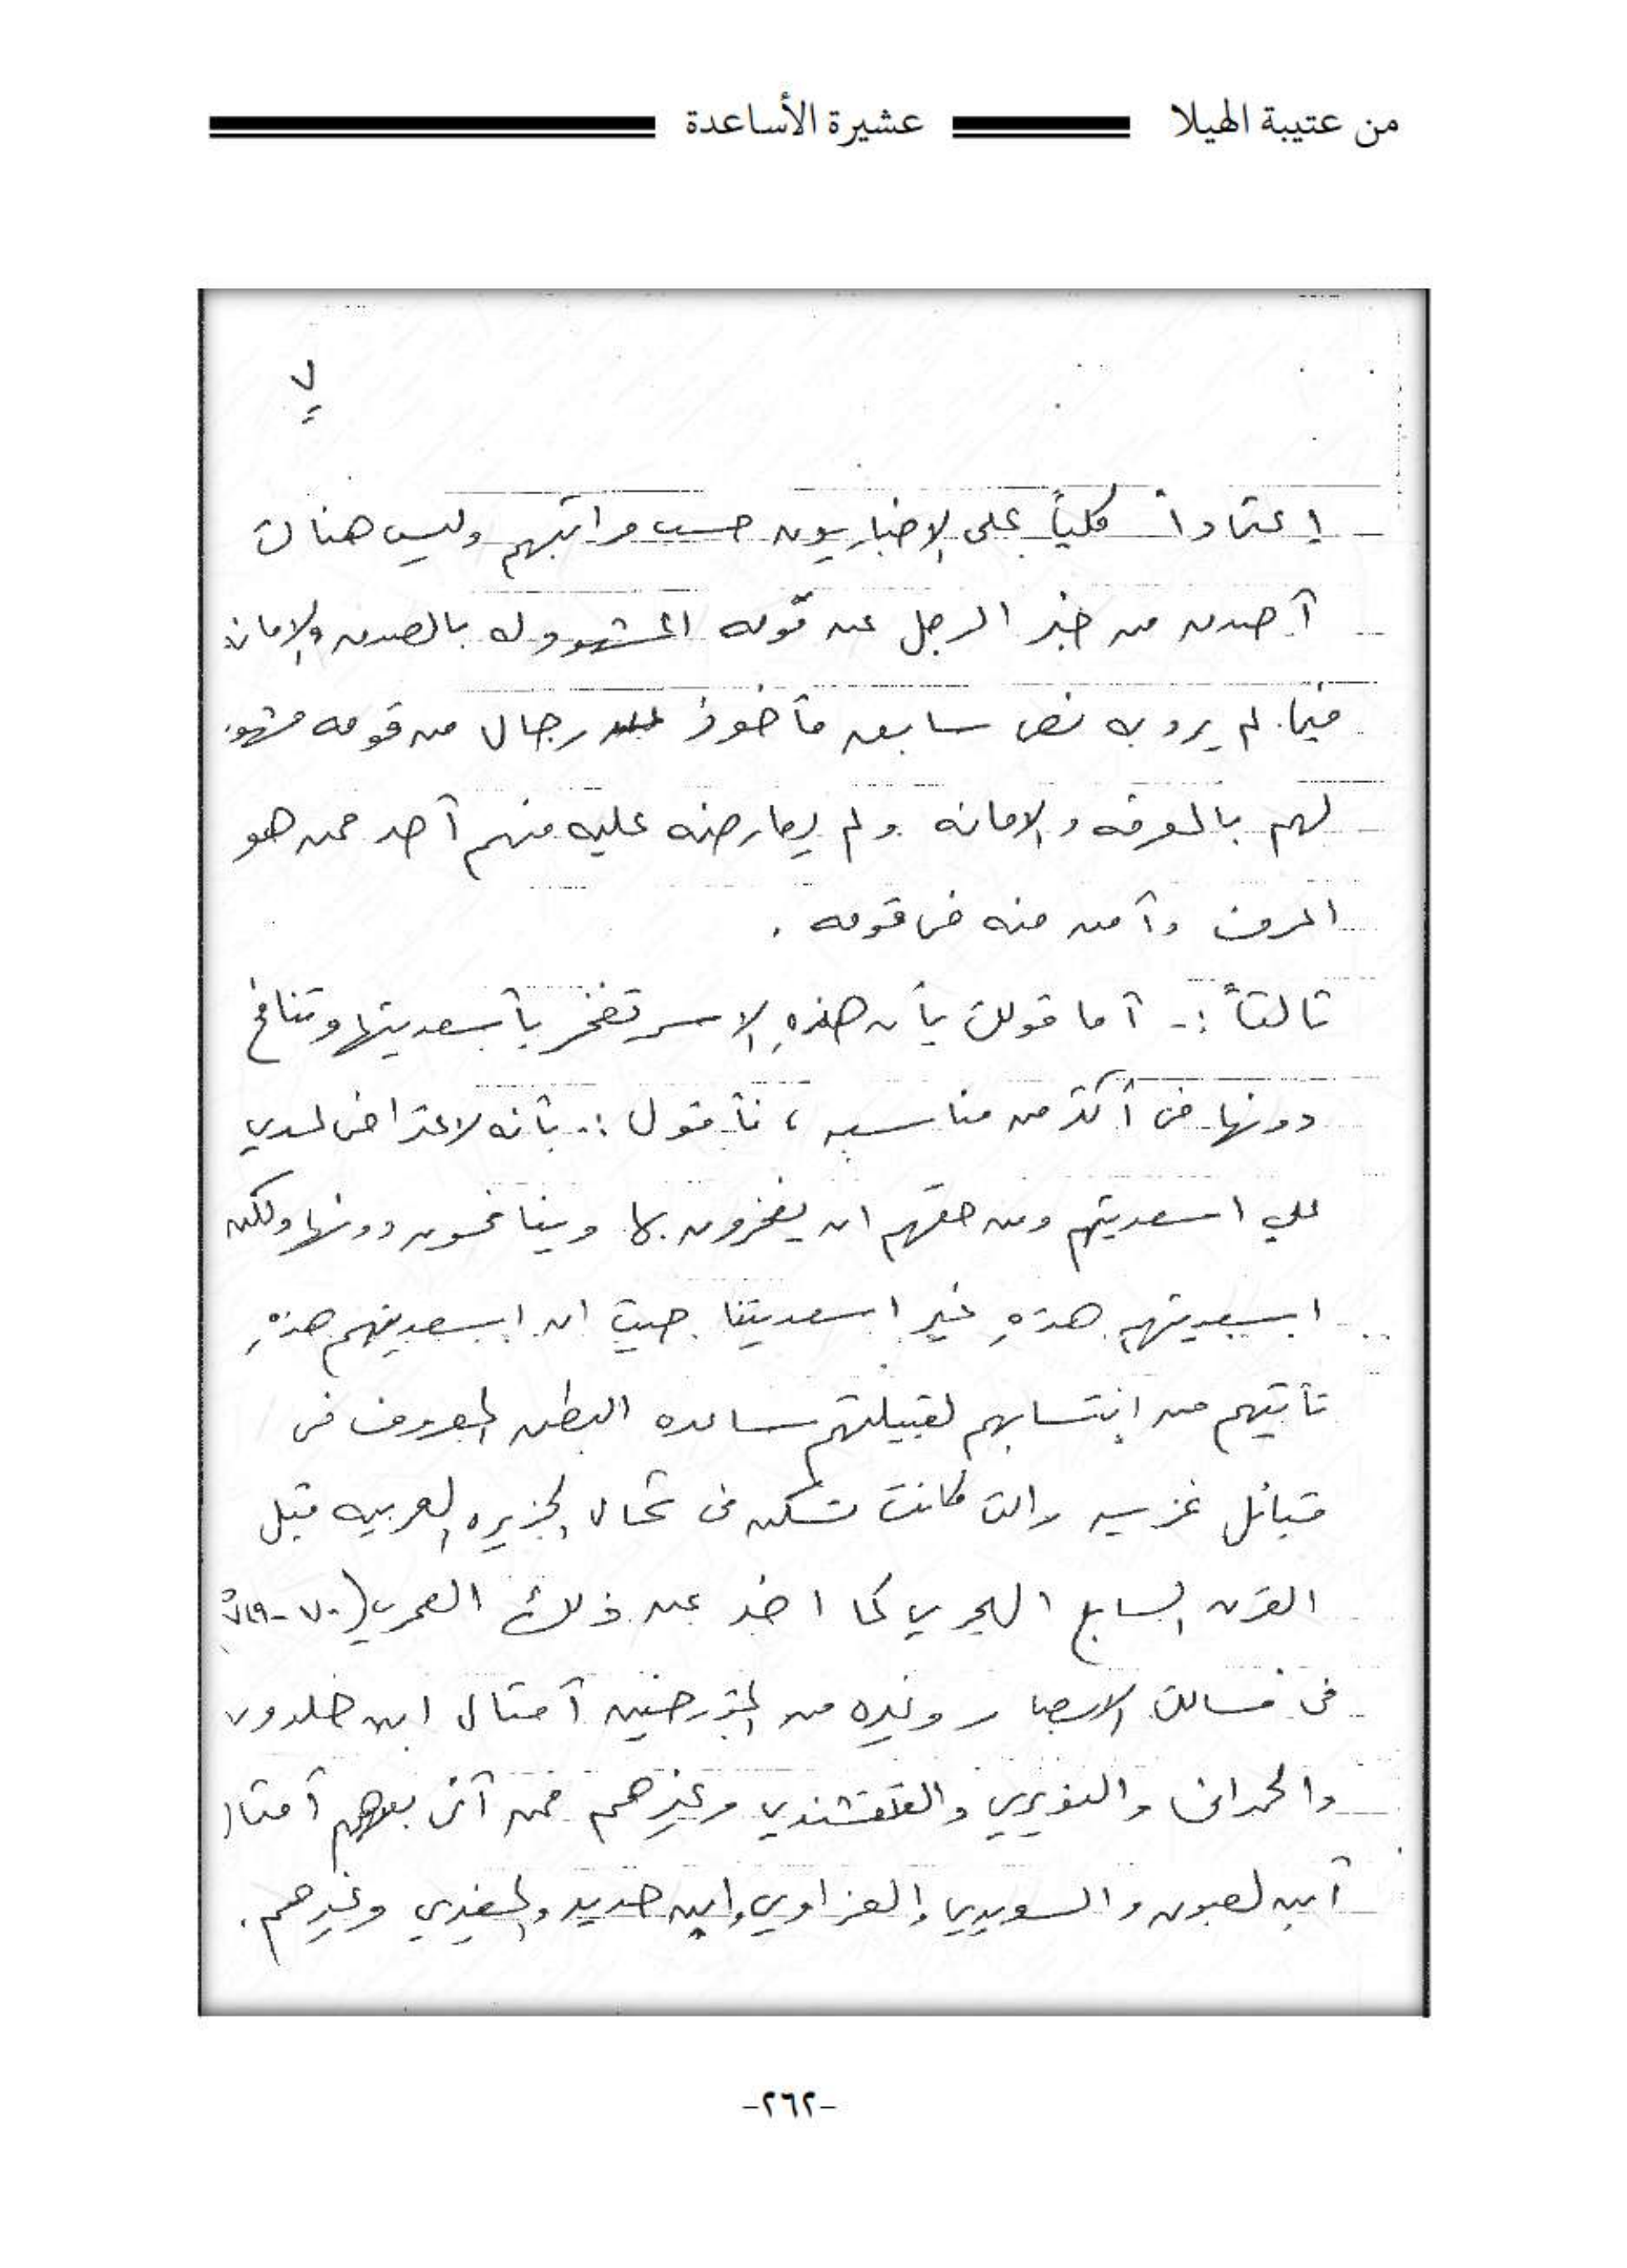 من عتيبة الهيلا عشيرة الأساعدة
٧
إعتماداً كلياً على الإخباريون حسب مراتبهم وليس هناك
أصدق من خبر الرجل عن قومه المشهود له بالصدق والامانه
فيما لم يرد به نص سابق مأخوذ رجال من قومه مشهود
لهم بالمعرفه والامانه ولم يعارضه عليه منهم أحد ممن هو
اعرف وآمن منه في قومه .
ثالثاً :- أما قولك بأن هذه الاسر تفخر بأسعديتها وتنافح
دونها في أكثر من مناسبه ، فأقول :- بأنه لاعتراض لدي
علي اسعديتهم ومن حقهم ان يفخرون بها وينافحون دونها ولكن
اسعديتهم هذه غير اسعديتنا حيث ان اسعديتهم هذه
تأتيهم من إنتسابهم لقبيلتهم ساعده البطن المعروف في
قبائل غزيه والتي كانت تسكن في شمال الجزيره العربيه قبل
القرن السابع الهجري كما اخذ عن ذلك العمري (٧٠٠-٧٤٩هـ
في مسالك الابصار وغيره من المؤرخين أمثال ابن خلدون
والحمداني والنويري والقلقشندي وغيرهم ممن أتى بعدهم أمثال
أبن لعبون والسويدي والعزاوي وابن حديد والمغيري وغيرهم .
-٢٦٢-